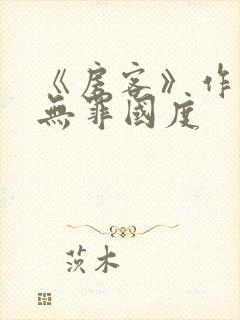 《房客》作
無罪國度
茨木